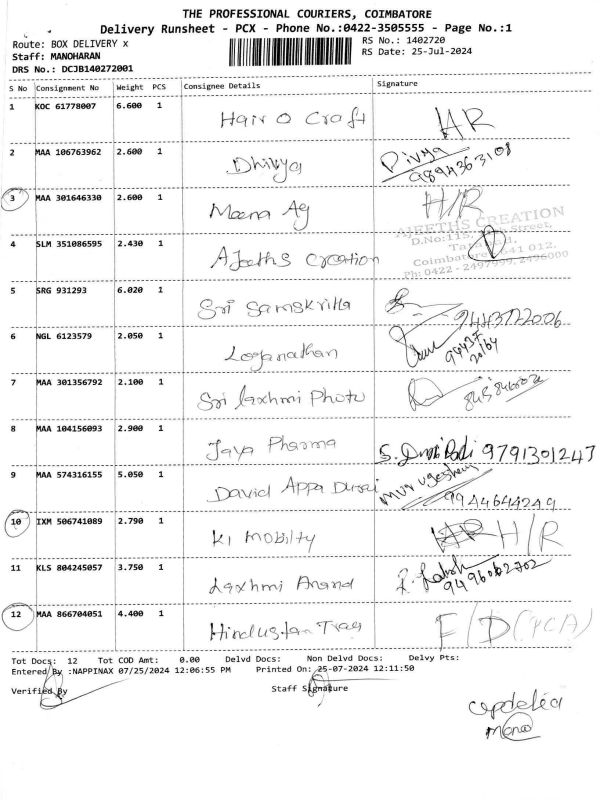 THE PROFESSIONAL COURIERS, COIMBATORE
Delivery Runsheet - PCX - Phone No.:0422-3505555 - Page No.:1
Route: BOX DELIVERY x
RS No.: 1402720
Staff: MANOHARAN
RS Date: 25-Jul-2024
DRS No.: DCJB140272001
S No Consignment No Weight PCS Consignee Details Signature
1 KOC 61778007 6.600 1 Hair O Craft H/R
2 MAA 106763962 2.600 1 Dhivya Divya
9894363108
3 MAA 301646330 2.600 1 Meena Ag H/R
4 SLM 351086595 2.430 1 Ajeeths Creation
AJEETHS CREATION
Coimbatore - 641 012.
Ph: 0422 - 2497999, 2496000
5 SRG 931293 6.020 1 Sri Samskritha 9443722006
6 NGL 6123579 2.050 1 Loganathan
7 MAA 301356792 2.100 1 Sri laxhmi Photo
8 MAA 104156093 2.900 1 Jaya Pharma 9791301247
9 MAA 574316155 5.050 1 David Appa Durai
9944644249
10 IXM 506741089 2.790 1 KI mobilty H/R
11 KLS 804245057 3.750 1 Laxhmi Anand
12 MAA 866704051 4.400 1 Hindustan Trag F/D (PCA)
Tot Docs: 12 Tot COD Amt: 0.00 Delvd Docs: Non Delvd Docs: Delvy Pts:
Entered By :NAPPINAX 07/25/2024 12:06:55 PM Printed On: 25-07-2024 12:11:50
Verified By Staff Signature